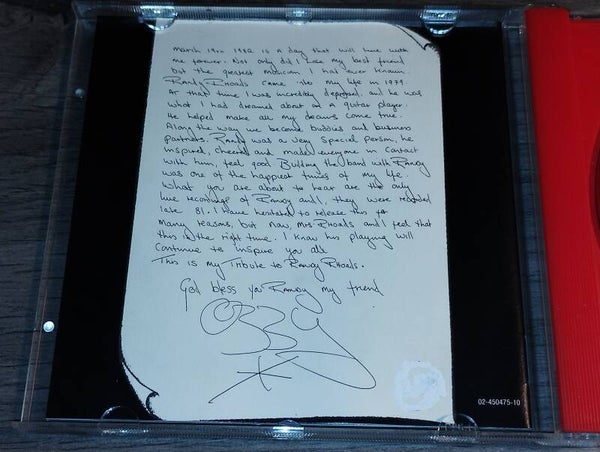 March 19th 1982 is a day that will live with
me forever. Not only did I lose my best friend
but the greatest musician I had ever known.
Randy Rhoads came into my life in 1979
At that time I was incredibly depressed, and he was
what I had dreamed about as a guitar player.
He helped make all my dreams come true.
Along the way we became buddies and business
partners. Randy was a very special person, he
inspired, cheered and made everyone in contact
with him, feel good Building the band with Randy
was one of the happiest times of my life.
What you are about to hear are the only
live recordings of Randy and I, they were recorded
late 81. I have hesitated to release this for
many reasons, but now, Mrs Rhoads and I feel that
this is the right time. I know his playing will
continue to inspire you all.
This is my Tribute to Randy Rhoads.
God bless you Randy my friend
OZZY
02-450475-10